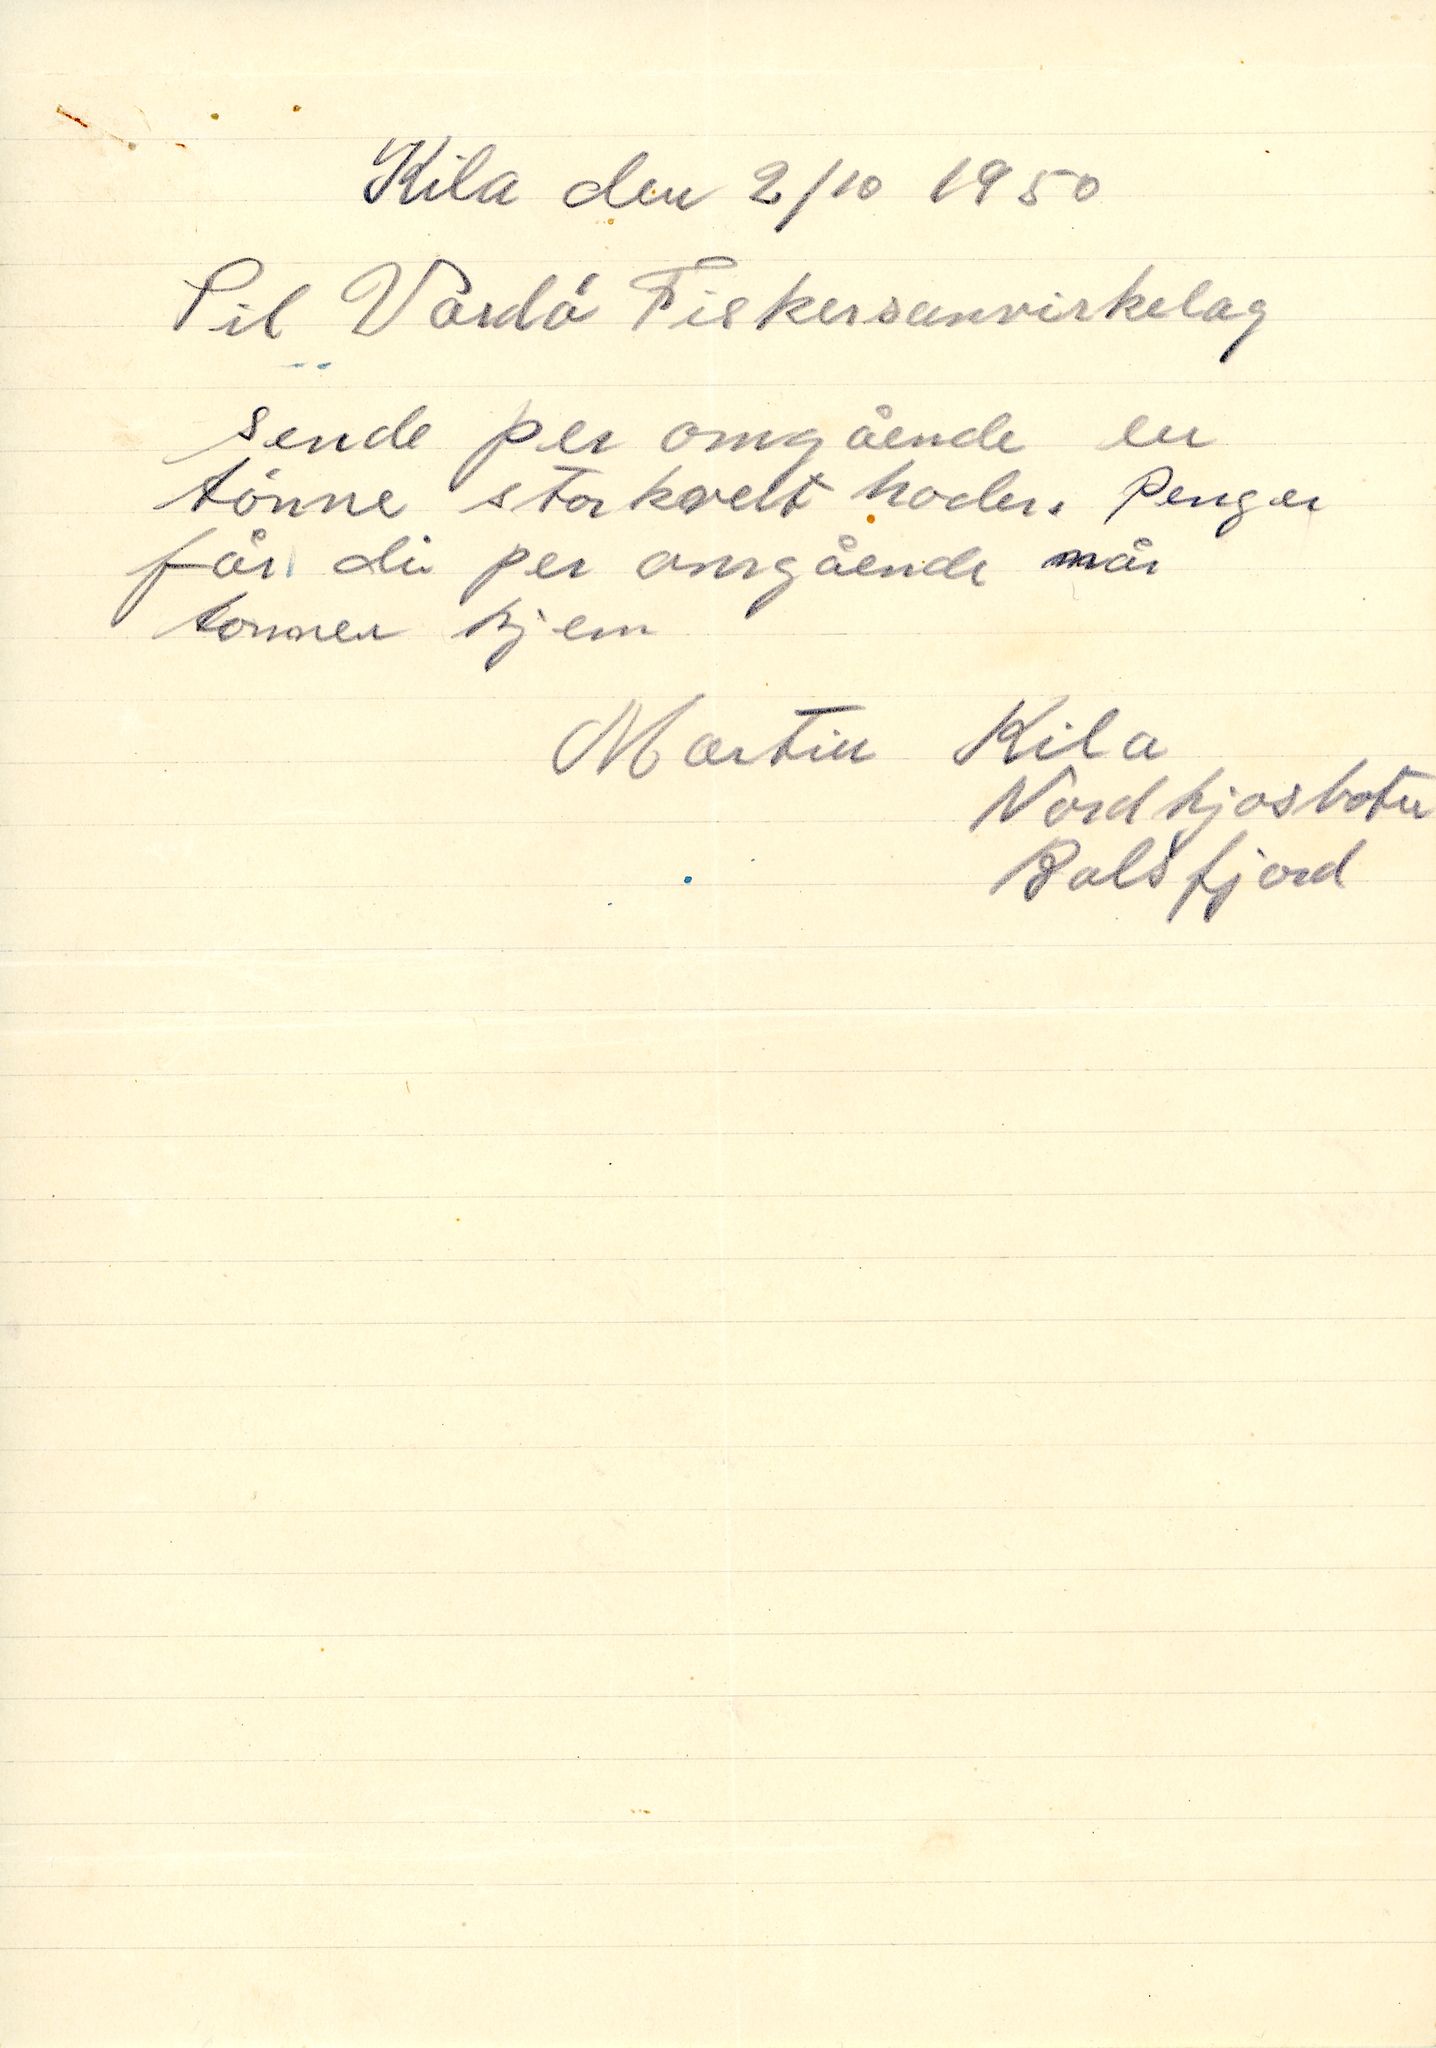 Kila den 2/10 1950
Til Vardó Fiskersamvirkelag
sende per omgående en
tónne storkveit hoder. Penger
får du per omgående når
tonnen kjem
Martin Kila
Nordkjosbotn
Balsfjord